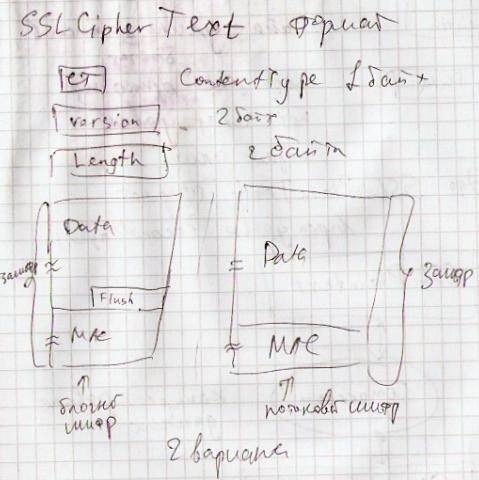 SSLCipher Text формат
CT ContentType 1 байт
Version 2 байт
Length 2 байта
Data Data
зашифр зашифр
Flush
MAC MAC
блочный шифр потоковый шифр
2 варианта